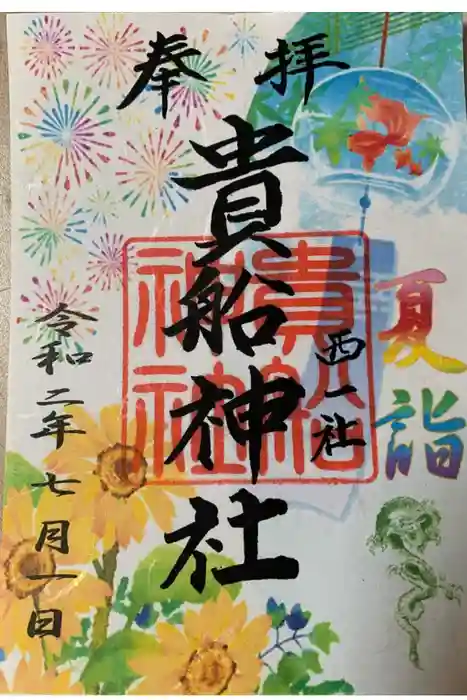 奉拝
夏詣
西一社
貴船神社
貴船
神社
令和二年七月一日